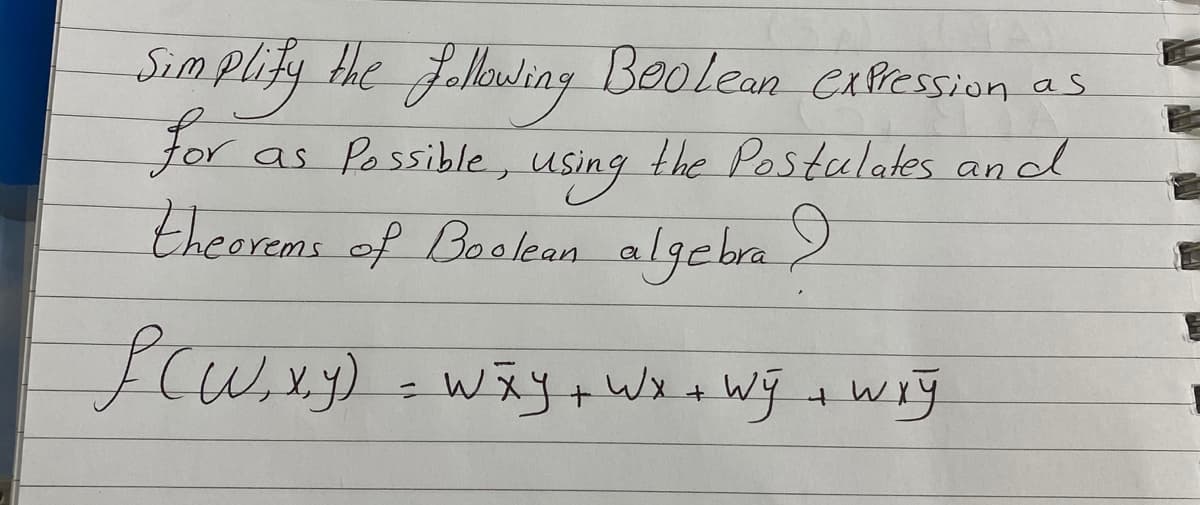 Simplify the following Boolean expression as
for as Possible, using the Postulates and
theorems of Boolean algebra?
f(w,x,y) = wx̄y + wx + wȳ + wxȳ